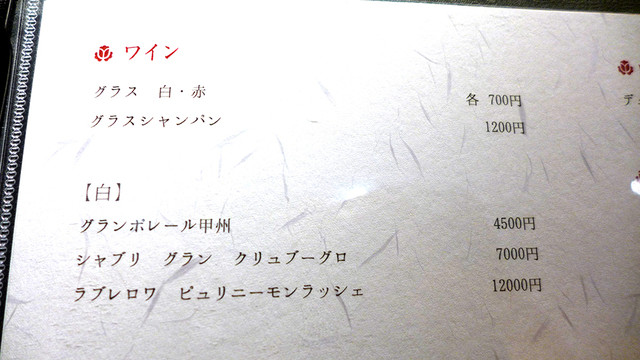 ワイン
グラス 白・赤 各 700円
グラスシャンパン 1200円
【白】
グランポレール甲州 4500円
シャブリ グラン クリュブーグロ 7000円
ラブレロワ ピュリニーモンラッシェ 12000円
デ